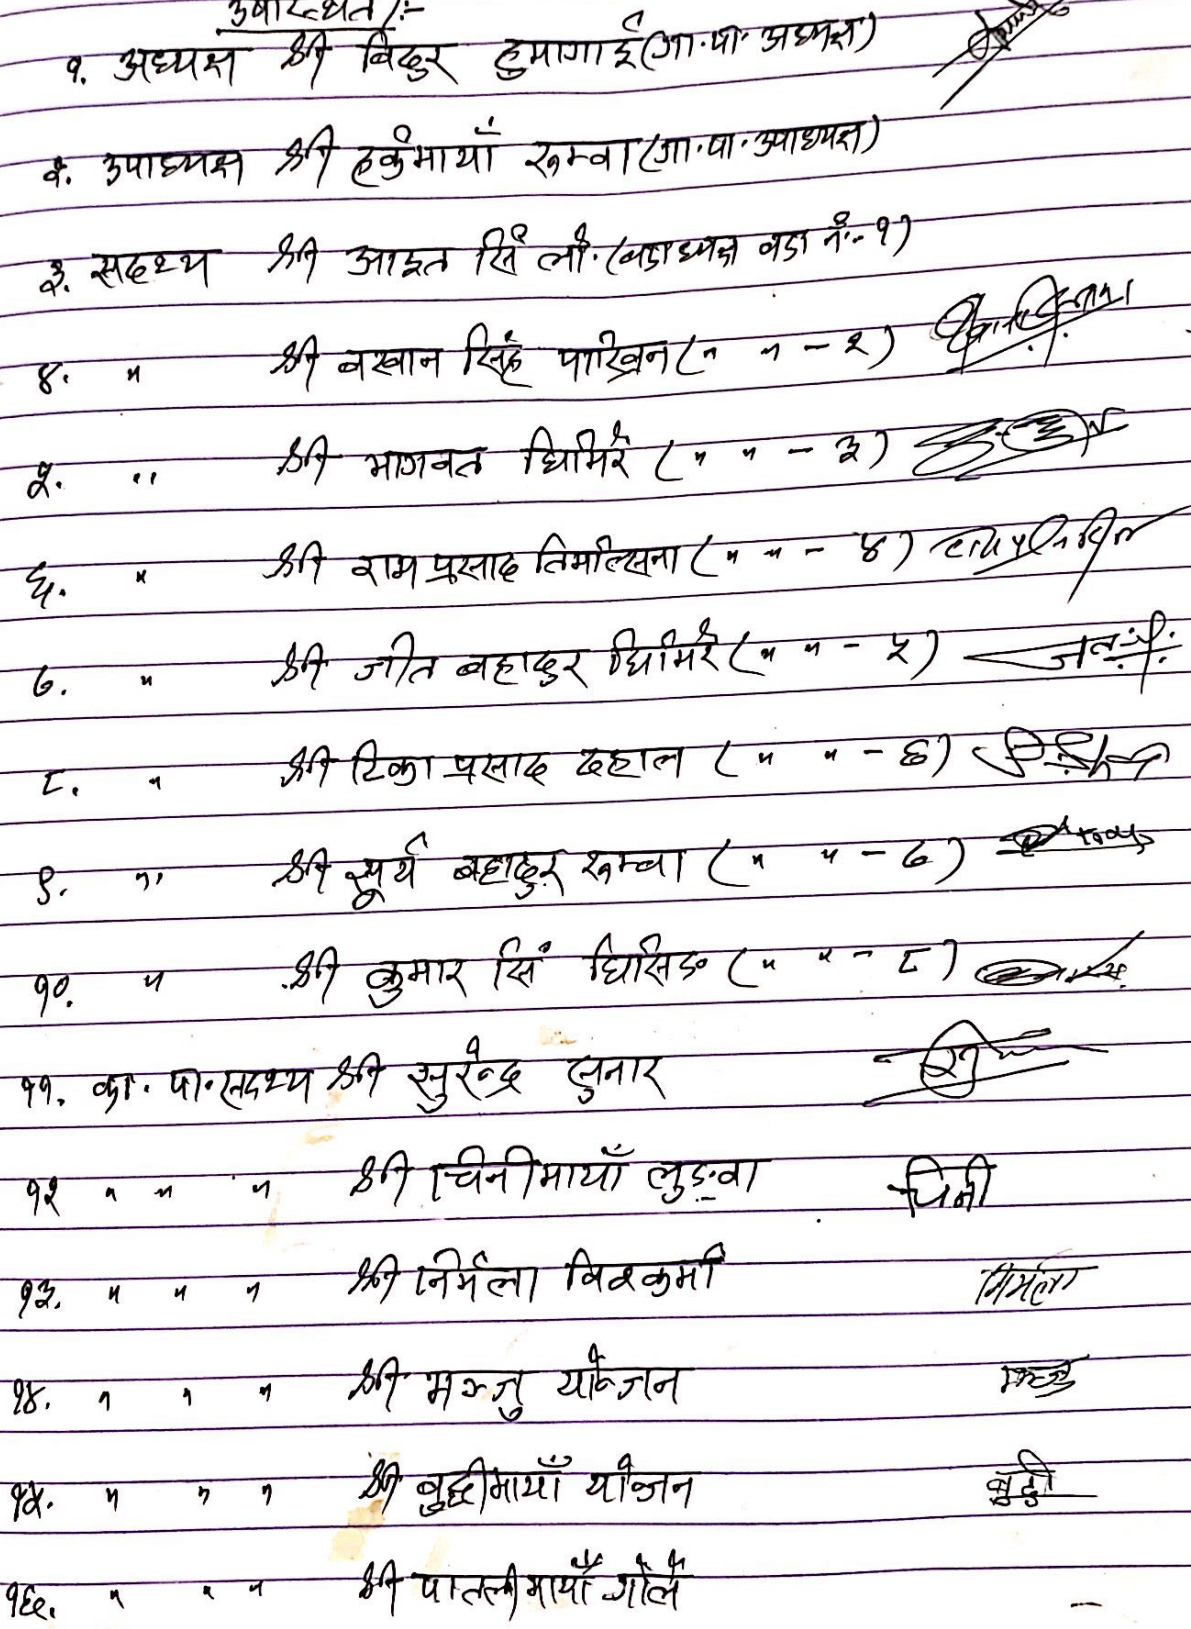 उपस्थिति :-
१. अध्यक्ष श्री बिदुर हुमागाई (गा.पा. अध्यक्ष)
२. उपाध्यक्ष श्री हर्कुमायाँ रुम्बा (गा.पा. उपाध्यक्ष)
३. सदस्य श्री आइत सिं लो. (वडाध्यक्ष वडा नं.-१)
४. " श्री बखान सिंह पाख्रिन (" " - २)
५. " श्री भागवत घिमिरे (" " - ३)
६. " श्री राम प्रसाद तिमल्सिना (" " - ४)
७. " श्री जीत बहादुर घिमिरे (" " - ५) जित
८. " श्री टिका प्रसाद दहाल (" " - ६)
९. " श्री सूर्य बहादुर रुम्बा (" " - ७)
१०. " श्री कुमार सिं घिसिङ (" " - ८)
११. का. पा. सदस्य श्री सुरेन्द्र सुनार
१२ " " " श्री चिनीमायाँ लुङ्वा चिनी
१३. " " " श्री निर्मला विश्वकर्मा निर्मला
१४. " " " श्री मञ्जु योन्जन मञ्जु
१५. " " " श्री बुद्धीमायाँ योन्जन बुद्धी
१६. " " " श्री पातलीमायाँ गोले -